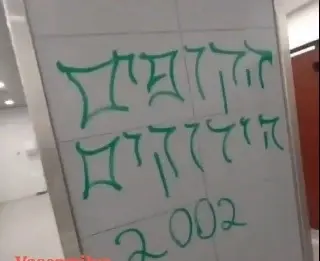 הקופים
הירוקים
2002